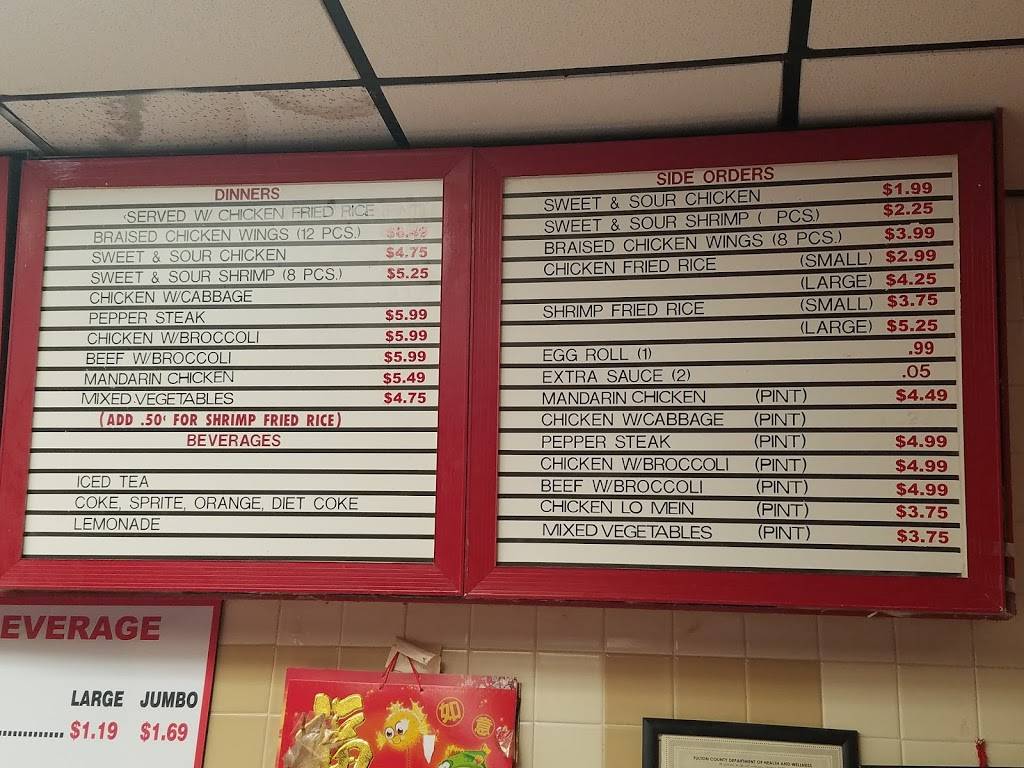 DINNERS
SERVED W/ CHICKEN FRIED RICE
BRAISED CHICKEN WINGS (12 PCS.)
SWEET & SOUR CHICKEN $4.75
SWEET & SOUR SHRIMP (8 PCS.) $5.25
CHICKEN W/CABBAGE
PEPPER STEAK $5.99
CHICKEN W/BROCCOLI $5.99
BEEF W/BROCCOLI $5.99
MANDARIN CHICKEN $5.49
MIXED VEGETABLES $4.75
(ADD .50¢ FOR SHRIMP FRIED RICE)
BEVERAGES
ICED TEA
COKE, SPRITE, ORANGE, DIET COKE
LEMONADE
SIDE ORDERS
SWEET & SOUR CHICKEN $1.99
SWEET & SOUR SHRIMP ( PCS.) $2.25
BRAISED CHICKEN WINGS (8 PCS.) $3.99
CHICKEN FRIED RICE (SMALL) $2.99
(LARGE) $4.25
SHRIMP FRIED RICE (SMALL) $3.75
(LARGE) $5.25
EGG ROLL (1) .99
EXTRA SAUCE (2) .05
MANDARIN CHICKEN (PINT) $4.49
CHICKEN W/CABBAGE (PINT)
PEPPER STEAK (PINT) $4.99
CHICKEN W/BROCCOLI (PINT) $4.99
BEEF W/BROCCOLI (PINT) $4.99
CHICKEN LO MEIN (PINT) $3.75
MIXED VEGETABLES (PINT) $3.75
EVERAGE
LARGE JUMBO
.............. $1.19 $1.69
如意
FULTON COUNTY DEPARTMENT OF HEALTH AND WELLNESS